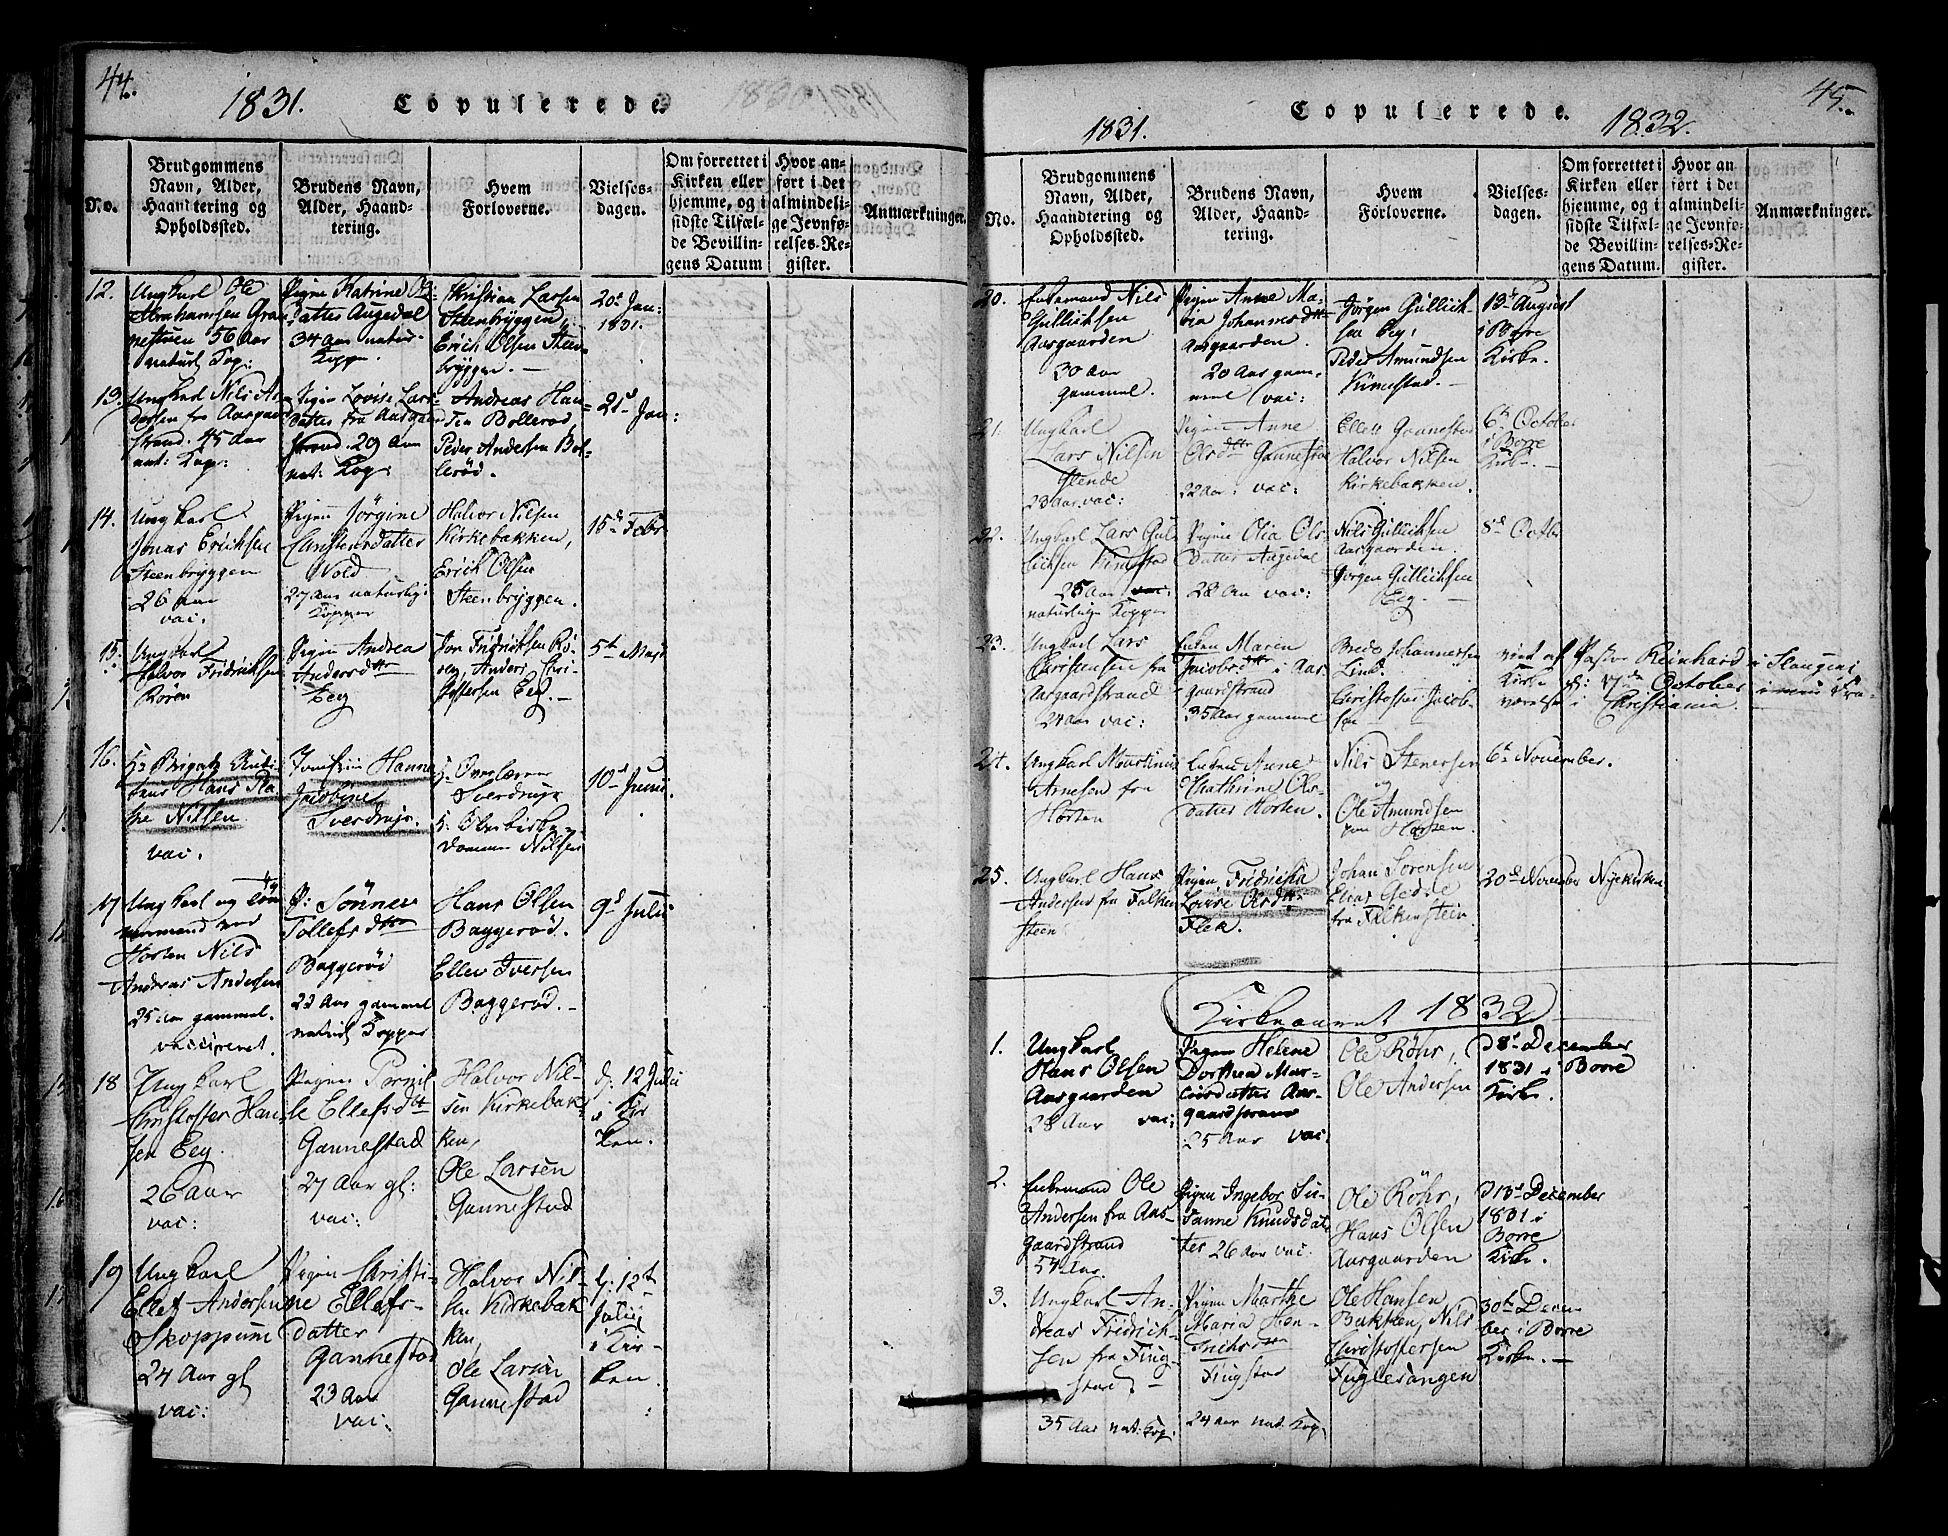 44.
1831.
Copulerede.
No.
Brudgommens Navn, Alder, Haandtering og Opholdssted.
Brudens Navn, Alder, Haandtering.
Hvem Forloverne.
Vielsesdagen.
Om forrettet i Kirken eller hjemme, og i sidste Tilfælde Bevillingens Datum
Hvor anført i det almindelige Jevnførelses-Register.
Anmærkninger.
12.
Ungkarl Ole
Abrahamsen Gran
nestuen 56 Aar
naturl Kop:
Pigen Katrine Ols
datter Augedal
34 aar natur-
Kopp.
Christian Larsen
Steenbryggen
Erich Olsen Steen
bryggen. —
20de Jan:
1831.
13.
Ungkarl Nils An
dersen fra Aasgaard
strand. 45 aar
nat: Kop:
Pigen Lovise Lars
datter fra Aasgaard
strand. 29 aar
nat: Kop:
Andreas Han-
sen Bollerød,
Peder Andersen Bol-
lerød.
21de Jan:
14.
Ungkarl
Jonas Erichsen
Steenbryggen
26 aar
vac.
Pigen Jørgine
Christensdatter
Wold
27 aar naturlig.
Kopper
Halvor Nilsen
Kirkebakken,
Erich Olsen
Steenbryggen.
15de Febr
15.
Ungkarl
Halvor Fridrichsen
Røren
Pigen Andrea
Andersdttr
Eeg
Fridrichsen Rø-
Anders Chri-
stofersen Eeg. —
5te Maji
16.
Hr Brigade
Hans Ra-
Nilsen
vac.
Jomfrue Hanne
Jacobine
Sverdrup.
Hr. Overlærer
Sverdrup
Nilsen
10de Junii.
17
Ungkarl og Tøm
mermand ved
Horten Nils
Andreas Andersen
25 aar gammel.
vaccineret.
P: Sønnev
Tollefsdttr
Baggerød
23 Aar gammel
naturl Kopper
Hans Olsen
Baggerød.
Ellev Iversen
Baggerød. —
9de Julii
18
Ungkarl
Christoffer Han-
sen Eeg.
26 aar
vac:
Pigen
le Ellefsdtt
Gannestad
27 Aar gl:
vac:
Halvor Nil-
sen Kirkebak-
ken,
Ole Larsen
Gannestad
d: 12 Julii
i Kir
ken.
19
Ungkarl
Ellef Andersen
Skoppum
24 Aar gl
vac:
Pigen Christi-
ne Ellefs-
datter
Gannestad
23 Aar
vac:
Halvor Nil-
sen Kirkebak
ken,
Ole Larsen
Gannestad
d: 12te
Julii
i Kir-
ken.
45.
1831.
Copulerede.
1832.
No.
Brudgommens Navn, Alder, Haandtering og Opholdssted.
Brudens Navn, Alder, Haandtering.
Hvem Forloverne.
Vielsesdagen.
Om forrettet i Kirken eller hjemme, og i sidste Tilfælde Bevillingens Datum.
Hvor anført i det almindelige Jevnførelses-Register.
Anmærkninger.
20.
Enkemand Nils
Gullichsen
Aasgaarden
30 aar
gammel.
Pigen Anne Ma-
ria Johannesdttr
Aasgaarden.
20 Aar gam-
mel vac:
Jørgen Gullich-
sen Eeg,
Peder Amundsen
Kimestad. —
13de August
i Borre
Kirke.
21.
Ungkarl
Lars Nilsen
Stende
23 aar vac:
Pigen Anne
Olsdttr Gannestad
22 Aar. vac:
Ellef Gannestad
Halvor Nilsen
Kirkebakken.
6te October
i Borre
Kirke. —
22.
Ungkarl Lars Gul
lichsen Kimestad
25 aar vac:
naturlige Kopper
Pigen Olia Ols-
datter Augedal
28 Aar vac:
Nils Gullichsen
Aasgaarden.
Jørgen Gullichsen
Eeg. —
8de Octbr
23.
Ungkarl Lars
Christensen fra
Aasgaardstrand
24 aar vac:
Enken Maren
Jacobsdttr i Aas-
gaardstrand
35 Aar gammel
Bredo Johannesen
Linde
Christoffer Jacob-
sen
viet af Pastor Reinhard i Slaugens
Kirke d: 17de October i min Fra-
værelse i Christiania.
24.
Ungkarl Martinus
Arnesen fra
Horten
Enken Anne
Kathrine Ols-
datter Horten.
Nils Stenersen
og
Ole Amundsen
Horten.
6te November.
25.
Ungkarl Hans
Andersen fra Falken
steen
Pigen Fridricka
Lovise Olsdttr
Flek.
Johan Sørensen
Elias Gedde
fra Falkensteen
20de November Nykirken
Kirkeaaret 1832
1.
Ungkarl
Hans Olsen
Aasgaarden
28 Aar vac:
Pigen Helene
Dorthea Mar-
datter Aas-
gaardstrand
25 Aar vac:
Ole Röhr,
Ole Andersen
d 8de December
1831 i Borre
Kirke.
2.
Enkemand Ole
Andersen fra Aas-
gaardstrand
54 Aar.
Pigen Ingebor Su-
sanne Knudsdat
ter 26 Aar vac:
Ole Röhr,
Hans Olsen
Aasgaarden
d 13de December
1831 i
Borre
Kirke.
3.
Ungkarl An-
dreas Fridrich-
sen fra Fing-
stad, —
35 Aar nat: Kop.
Pigen Marthe
Maria Hen-
richsdttr
Fingstad
24 aar nat. Kop.
Ole Hansen
Bakken, Nils
Christoffersen
Fuglevangen
30te Decem
ber i Borre
Kirke. —